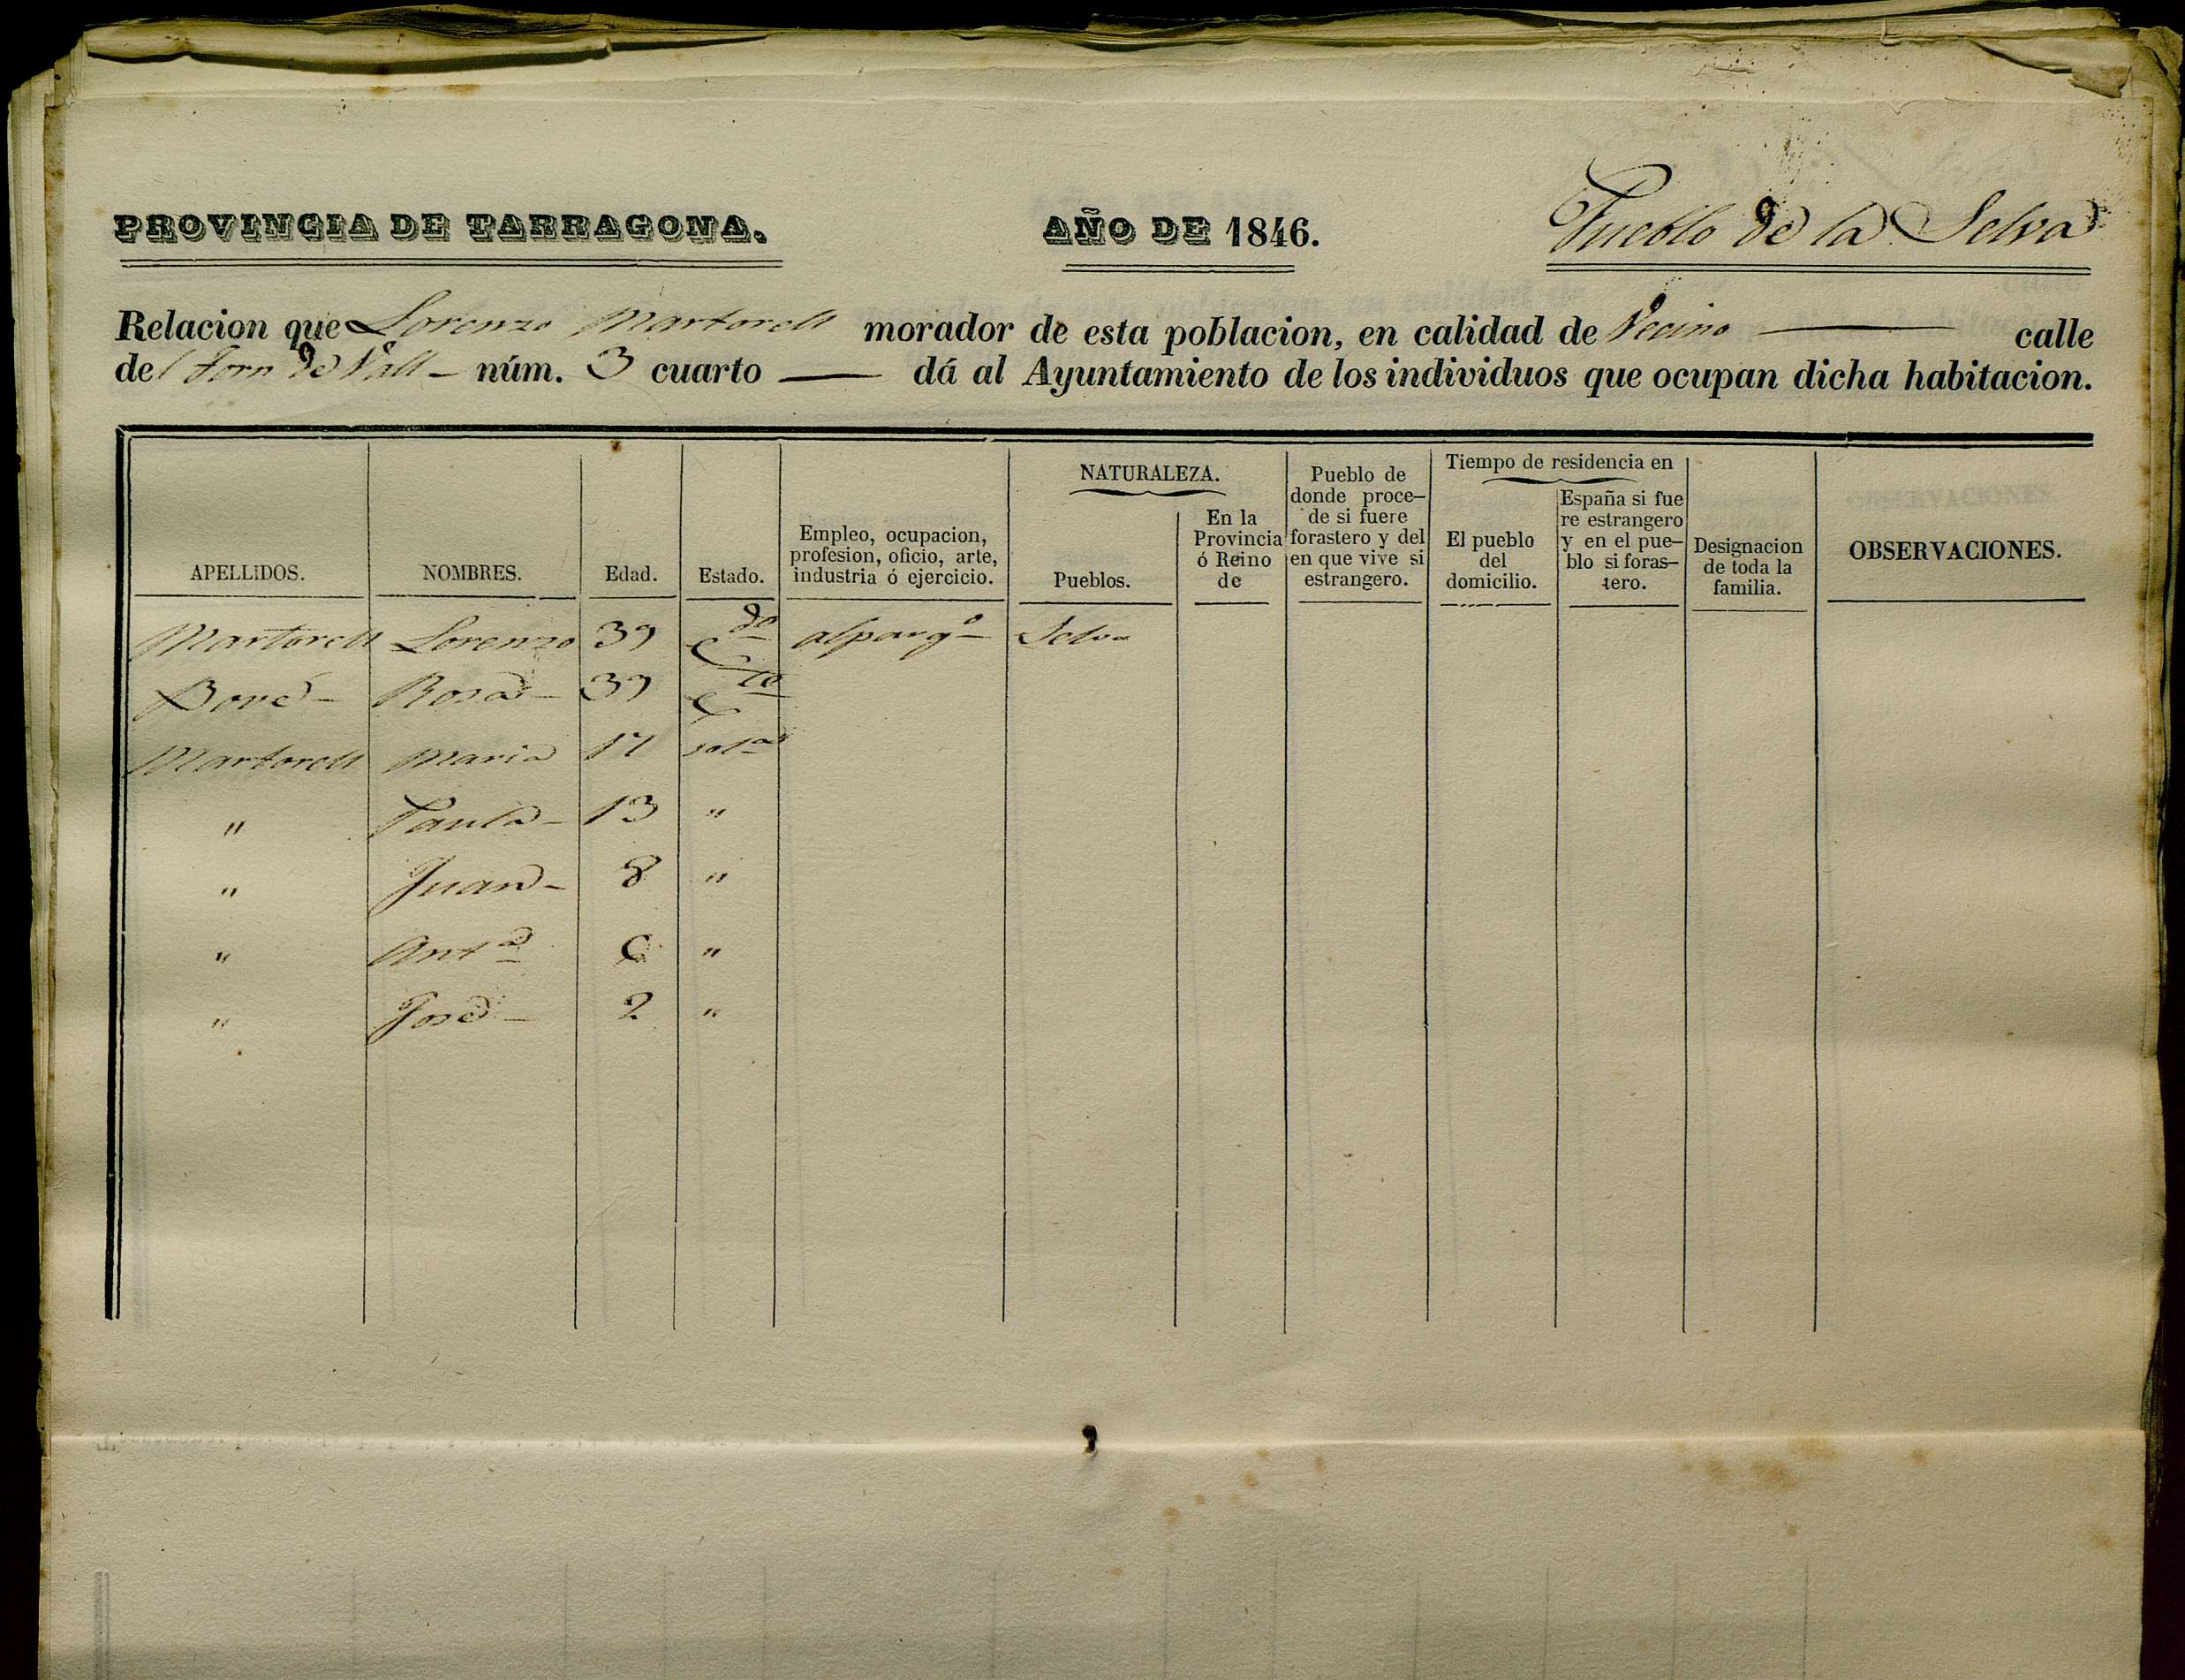 PROVINCIA DE TARRAGONA. AÑO DE 1846. Pueblo de la Selva
Relacion que Lorenzo Martorell morador de esta poblacion, en calidad de Vecino calle
del Forn de Vall núm. 3 cuarto — dá al Ayuntamiento de los individuos que ocupan dicha habitacion.
APELLIDOS. NOMBRES. Edad. Estado. Empleo, ocupacion, profesion, oficio, arte, industria ó ejercicio. NATURALEZA. Pueblos. En la Provincia ó Reino de Pueblo de donde proce-de si fuere forastero y del en que vive si estrangero. Tiempo de residencia en El pueblo del domicilio. España si fue re estrangero y en el pue-blo si foras-tero. Designacion de toda la familia. OBSERVACIONES.
Martorell Lorenzo 39 Cdo alpargo Selva
Boré Rosa 39 Cda
Martorell Maria 17 solа
" Paula 13 "
" Juan 8 "
" Anta 6 "
" José 2 "